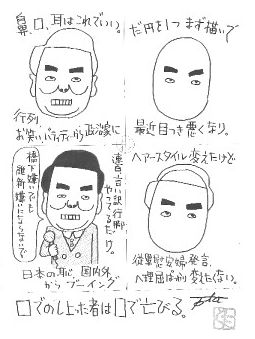 だ円を1つまず描いて
最近目つき悪くなり。
鼻、口、耳はこれでいい。
行列
お笑い、バラティーから政治家に
ヘアースタイル変えたけど
従軍慰安婦発言、
へ理屈ばかり変えたくない。
連日言い訳行脚
やってるだけ。
橋下嫌いでも
維新嫌いにならないで
日本の恥、国内外
からブーイング
口でのし上った者は口で亡びる。